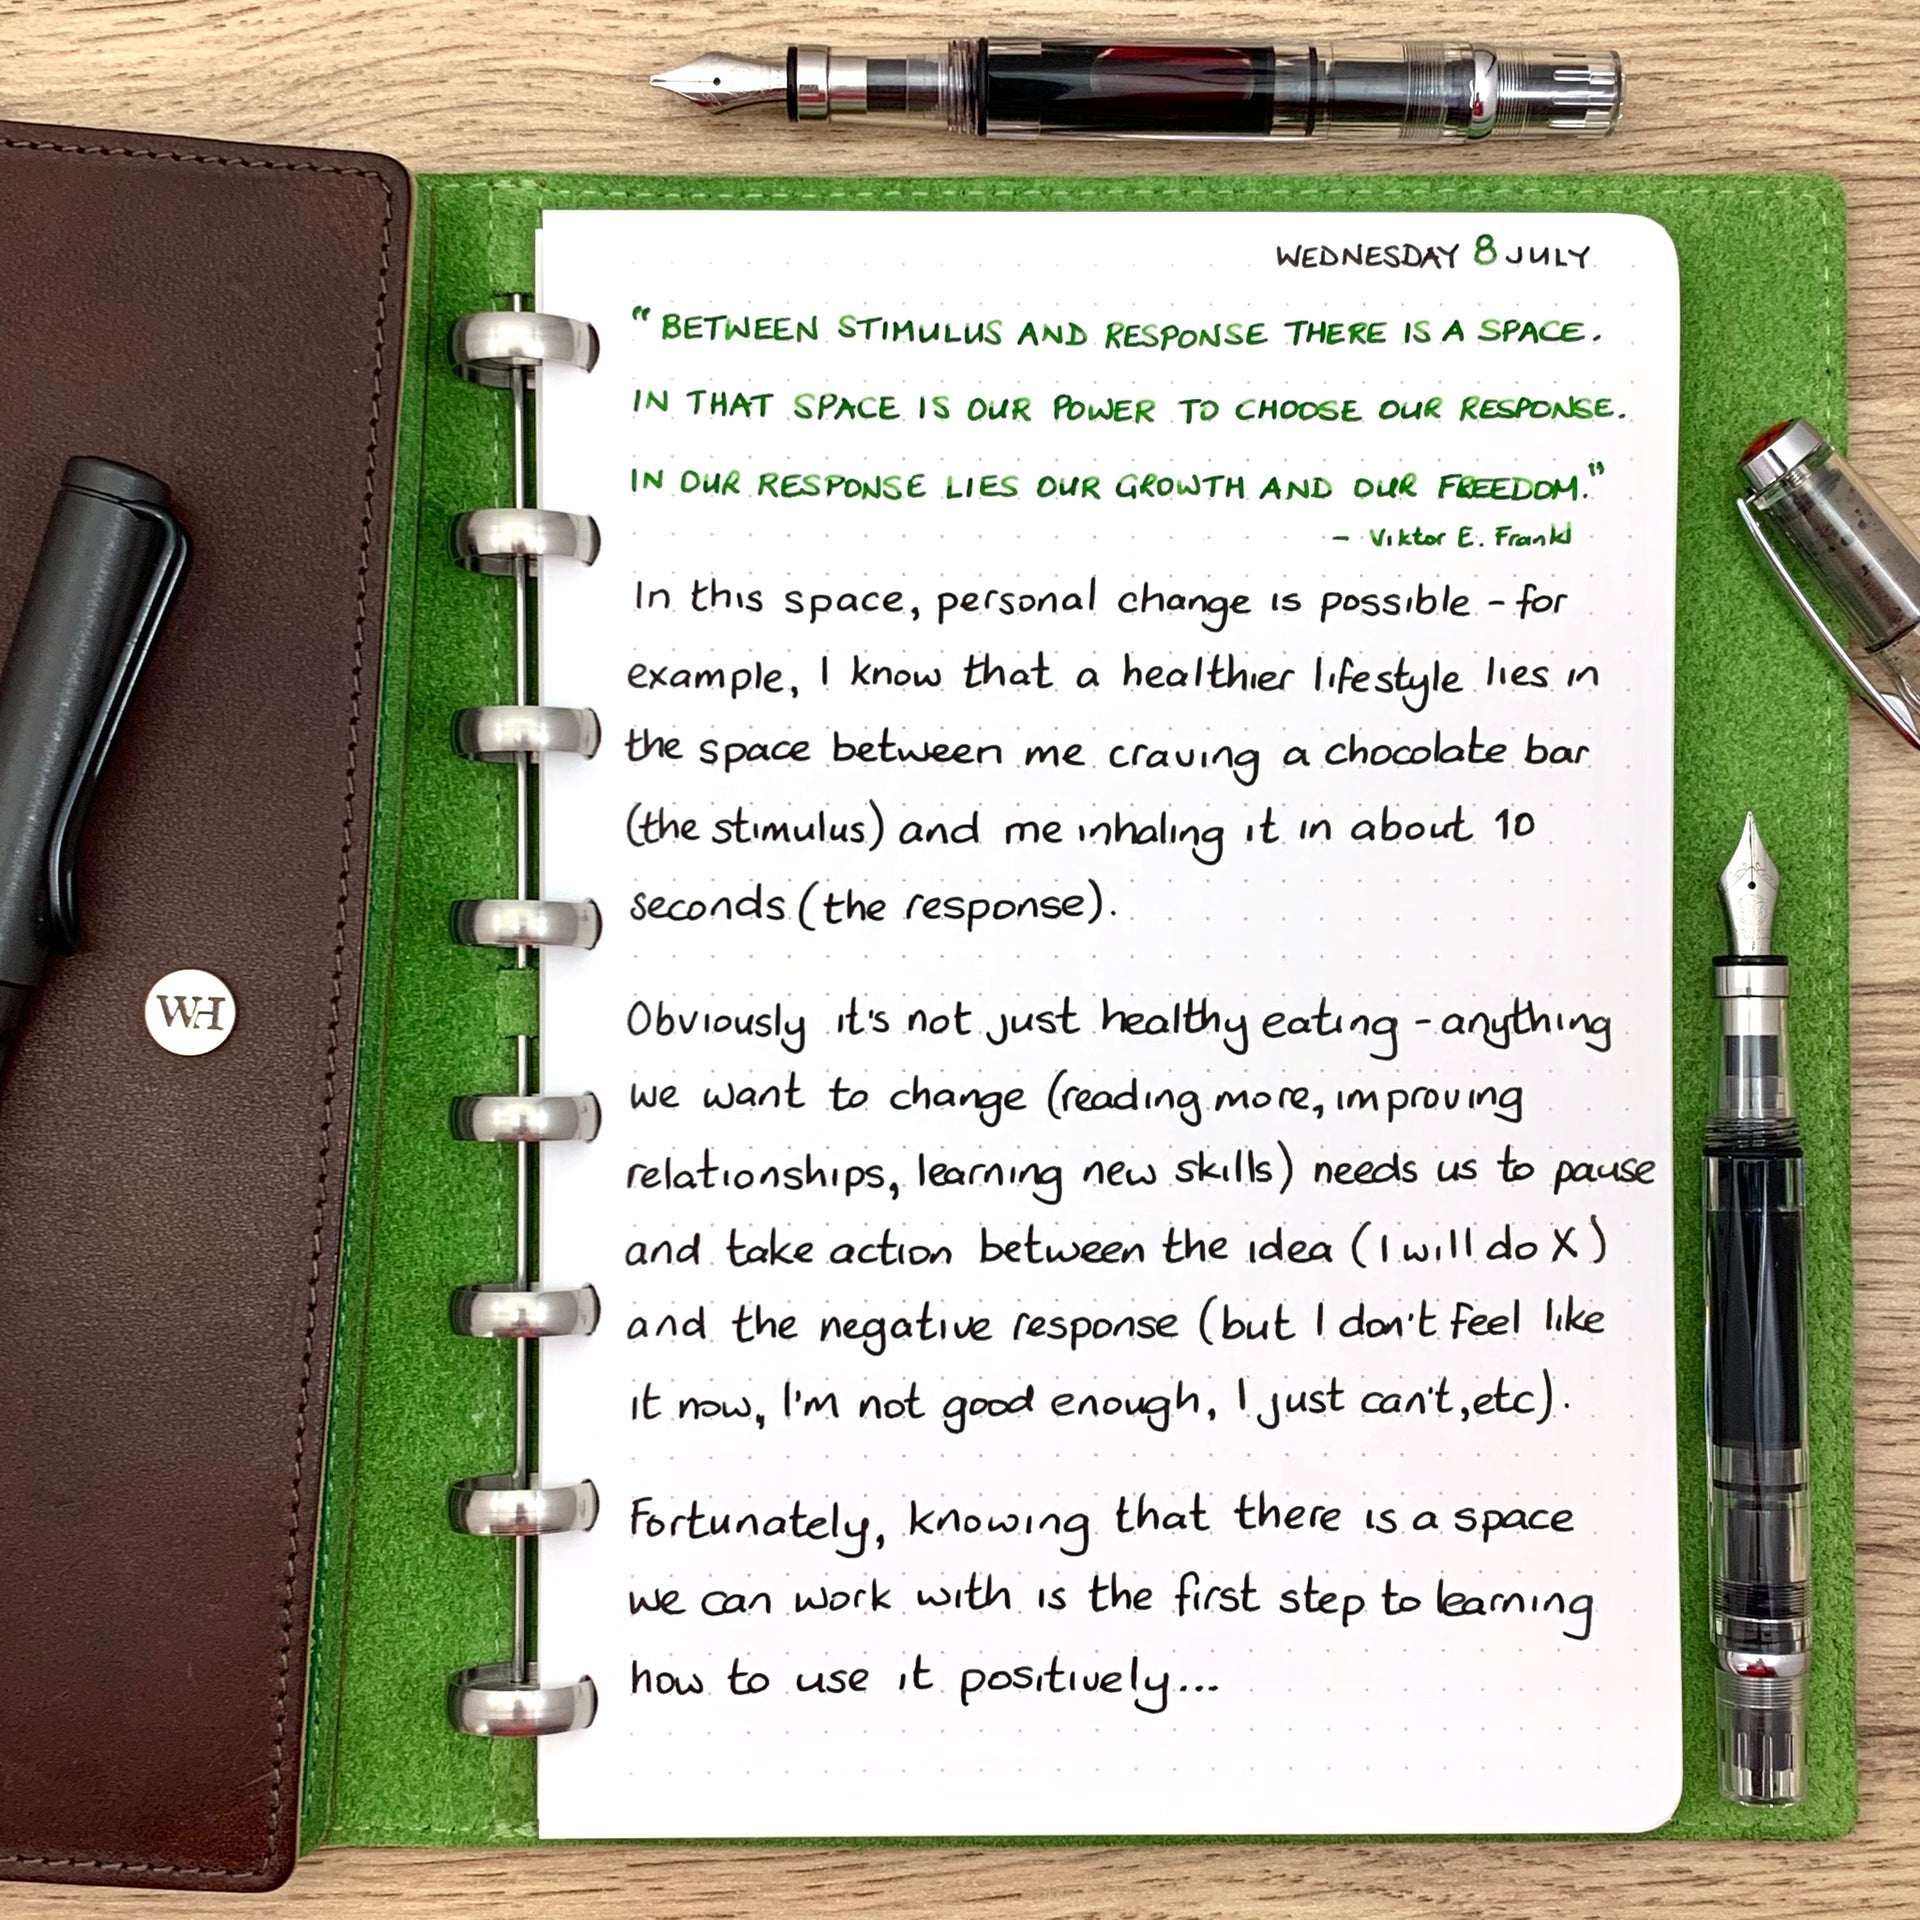 WEDNESDAY 8 JULY
"BETWEEN STIMULUS AND RESPONSE THERE IS A SPACE.
IN THAT SPACE IS OUR POWER TO CHOOSE OUR RESPONSE.
IN OUR RESPONSE LIES OUR GROWTH AND OUR FREEDOM."
- Viktor E. Frankl
In this space, personal change is possible - for
example, I know that a healthier lifestyle lies in
the space between me craving a chocolate bar
(the stimulus) and me inhaling it in about 10
seconds (the response).
Obviously it's not just healthy eating - anything
we want to change (reading more, improving
relationships, learning new skills) needs us to pause
and take action between the idea (I will do X)
and the negative response (but I don't feel like
it now, I'm not good enough, I just can't, etc).
Fortunately, knowing that there is a space
we can work with is the first step to learning
how to use it positively...
WH